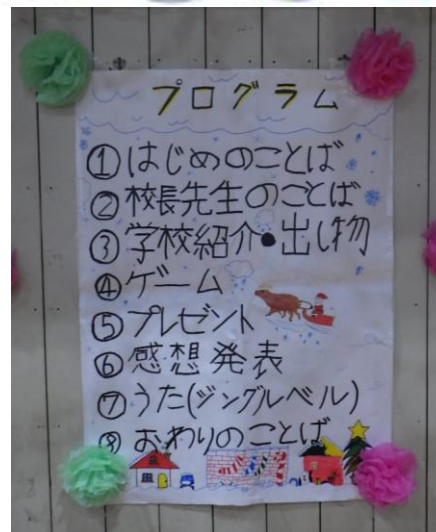 プログラム
①はじめのことば
②校長先生のことば
③学校紹介・出し物
④ゲーム
⑤プレゼント
⑥感想発表
⑦うた(ジングルベル)
⑧おわりのことば